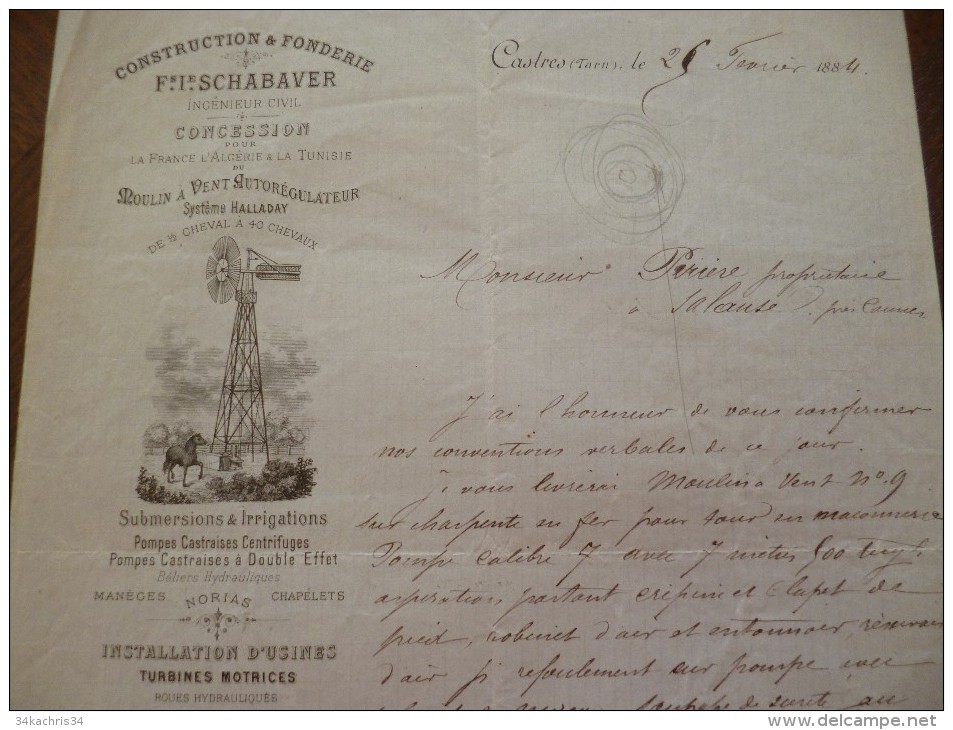 CONSTRUCTION & FONDERIE
Fs. Ie. SCHABAVER
INGÉNIEUR CIVIL
CONCESSION
POUR
LA FRANCE L'ALGÉRIE & LA TUNISIE
DU
MOULIN À VENT AUTORÉGULATEUR
Système HALLADAY
DE ½ CHEVAL À 40 CHEVAUX
Submersions & Irrigations
Pompes Castraises Centrifuges
Pompes Castraises à Double Effet
Béliers Hydrauliques
MANÈGES NORIAS CHAPÉLETS
INSTALLATION D'USINES
TURBINES MOTRICES
ROUES HYDRAULIQUES
Castres (Tarn), le 25 Fevrier 1884.
Monsieur Périère propriétaire
à près Cannes
J'ai l'honneur de vous confirmer
nos conventions verbales de ce jour.
Je vous livrerai Moulin à Vent N° 9
sur charpente en fer pour tour en maconnerie
Pompe calibre 7 avec 7 mètres 500
aspiration portant crépine et Clapet de
pied, robinet d'air et entonnoir, réservoir
d'air refoulement sur pompe avec
de sureté au
34kachris34
delcampe.net